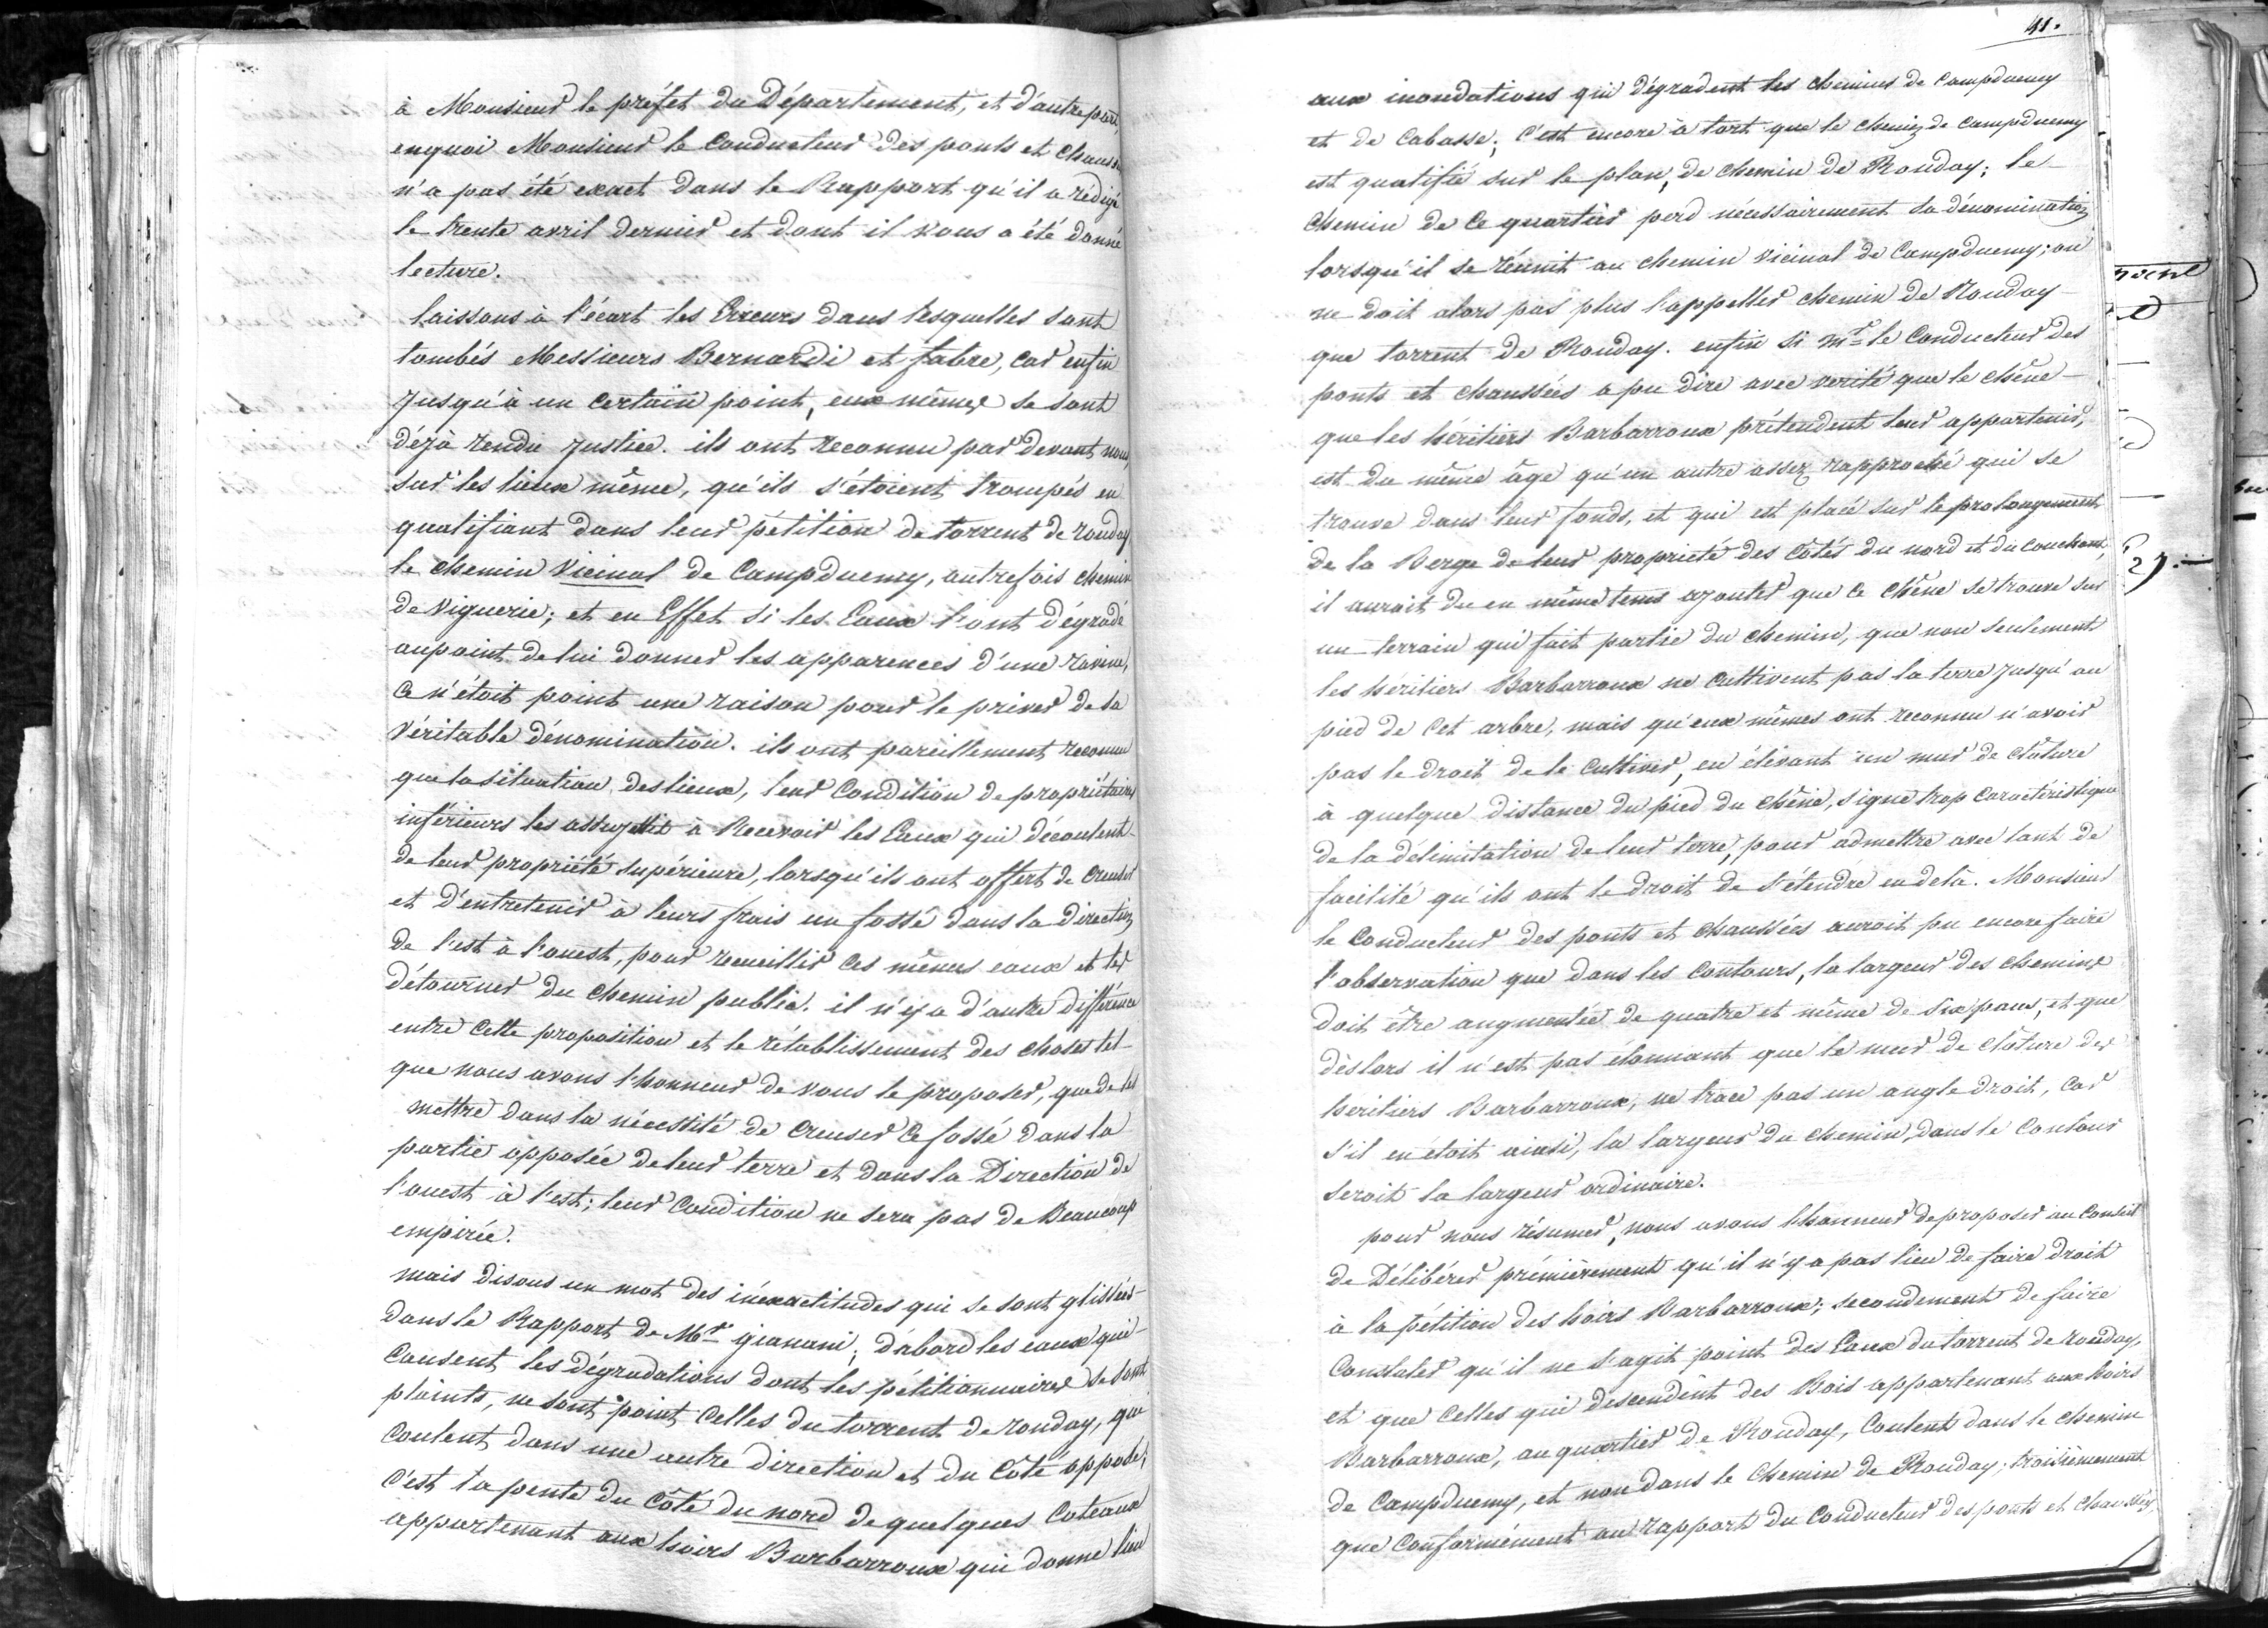 à Monsieur le préfet du Département, et d'autre part,
enquoi Monsieur le Conducteur des ponts et chaussées
n'a pas été exact dans le Rapport qu'il a rédigé
le trente avril dernier et dont il vous a été donné
lecture.
laissons à l'écart les Erreurs dans lesquelles sont
tombés Messieurs Bernardi et fabre, car enfin
jusqu'à un certain point, eux mêmes se sont
déjà rendu justice. ils ont reconnu par devant nous,
sur les lieux même, qu'ils s'étoient trompés en
qualifiant dans leur pétition de torrent de rouday
le chemin vicinal de Campduemy, autrefois chemin
de viguerie; et en Effet si les Eaux l'ont dégradé
aupoint de lui donner les apparences d'une ravine,
ce n'étoit point une raison pour le priver de sa
véritable dénomination. ils ont pareillement reconnu
que la situation des lieux, leur Condition de propriétaires
inférieurs les assujettit à Recevoir les Eaux qui découlent
de leur propriété supérieure, lorsqu'ils ont offert de creuser
et d'entretenir à leurs frais un fossé dans la direction
de l'est à l'ouest, pour recueillir ces mêmes eaux et les
détourner du chemin public. il n'y a d'autre différence
entre cette proposition et le rétablissement des choses tel
que nous avons l'honneur de vous le proposer, que de les
mettre dans la nécessité de creuser ce fossé dans la
partie opposée de leur terre et dans la Direction de
l'ouest à l'est; leur Condition ne sera pas de Beaucoup
empirée.
mais disons un mot des inéxactitudes qui se sont glissées
dans le Rapport de Mr gianani; d'abord les eaux qui
Causent les dégradations dont les pétitionnaires se sont
plaints, ne sont point celles du torrent de rouday, qui
Coulent dans une autre direction et du Côté opposé;
C'est la pente du Côté du nord de quelques Coteaux
appartenant aux hoirs Barbarroux qui donne lieu
41.
aux inondations qui dégradent les chemins de Campduemy
et de Cabasse; C'est encore à tort que le chemin de Campduemy
est qualifié sur le plan, de chemin de Rouday; le
Chemin de ce quartier perd nécessairement sa dénomination
lorsqu'il se réunit au chemin vicinal de Campduemy; on
ne doit alors pas plus l'appeller chemin de Rouday
que torrent de Rouday. enfin si mr le Conducteur des
ponts et chaussées a pu dire avec verité que le chêne
que les heritiers Barbarroux prétendent leur appartenir,
est du même âge qu'un autre assez rapproché qui se
trouve dans leur fonds, et qui est placé sur le prolongement
de la Berge de leur proprieté des Côtés du nord et du couchant,
il auroit du en même tems ajouter que ce chêne se trouve sur
un terrain qui fait partie du chemin, que non seulement
les héritiers Barbarroux ne cultivent pas la terre jusqu'au
pied de cet arbre, mais qu'eux mêmes ont reconnu n'avoir
pas le droit de le cultiver, en élevant un mur de clôture
à quelque distance du pied du chêne, signe trop caractéristique
de la délimitation de leur terre, pour admettre avec tant de
facilité qu'ils ont le droit de s'étendre en delà. Monsieur
le Conducteur des ponts et chaussées auroit pu encore faire
l'observation que dans les Contours, la largeur des chemins
doit être augmentée de quatre et même de six pans, et que
dèslors il n'est pas étonnant que le mur de clôture des
heritiers Barbarroux, ne trace pas un angle droit, car
s'il en étoit ainsi, la largeur du chemin, dans le Contour
seroit la largeur ordinaire.
pour nous résumer, nous avons l'honneur de proposer au Conseil
de Délibérer prémièrement qu'il n'y a pas lieu de faire droit
à la pétition des hoirs Barbarroux; secondement de faire
Constater qu'il ne s'agit point des Eaux du torrent de rouday,
et que celles qui descendent des Bois appartenant aux hoirs
Barbarroux, au quartier de Rouday, Coulent dans le chemin
de Campduemy, et non dans le chemin de Rouday; troisièmement
que Conformément au rapport du Conducteur des ponts et chaussées,